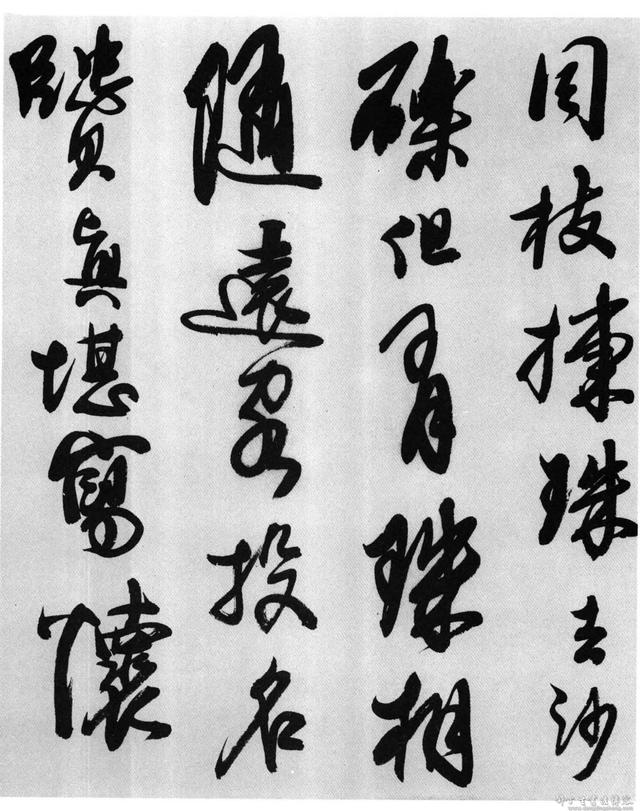 同枝揀珠去沙
礫但有珠相
隨遠客投名
賢真堪寫懷